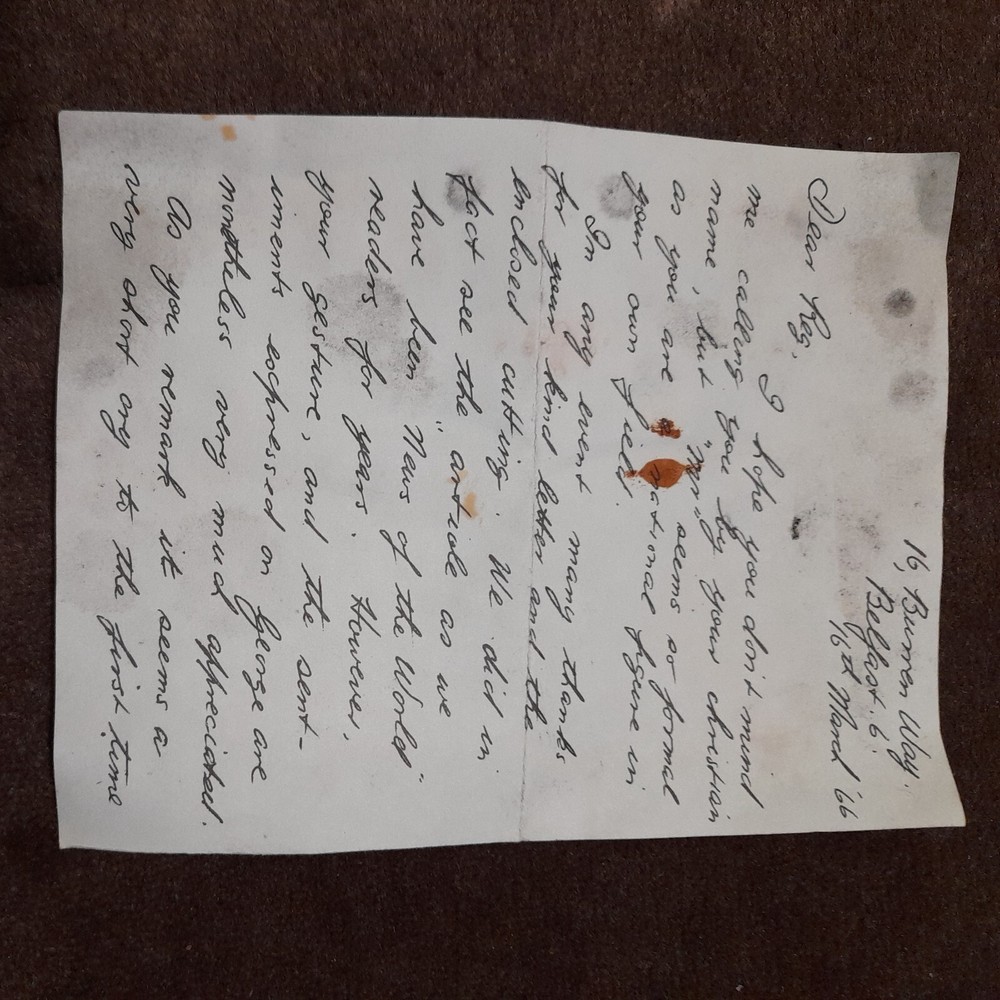 16, Burren Way,
Belfast. 6.
16th March '66
Dear Reg,
I hope you don't mind
me calling you by your christian
name, but "Mr." seems so formal
as you are a national figure in
your own field.
In any event many thanks
for your kind letter and the
enclosed cutting. We did in
fact see the "article as we
have been "News of the World"
readers for years. However,
your gesture, and the sent-
iments expressed on George are
nontheless very much appreciated.
As you remark it seems a
very short cry to the first time